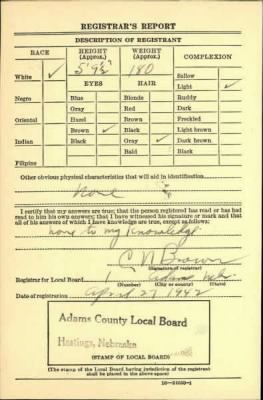 REGISTRAR'S REPORT
DESCRIPTION OF REGISTRANT
RACE HEIGHT (Approx.) WEIGHT (Approx.) COMPLEXION
5' 9½" 180
White ✓ Sallow
EYES HAIR Light ✓
Negro Blue Blonde Ruddy
Gray Red Dark
Oriental Hazel Brown Freckled
Brown ✓ Black Light brown
Indian Black Gray ✓ Dark brown
Bald Black
Filipino
Other obvious physical characteristics that will aid in identification
None
I certify that my answers are true; that the person registered has read or has had
read to him his own answers; that I have witnessed his signature or mark and that
all of his answers of which I have knowledge are true, except as follows:
none to my knowledge
C N Brown
(Signature of registrar)
Registrar for Local Board 1 Adams Neb.
(Number) (City or county) (State)
Date of registration April 27 1942
Adams County Local Board
Hastings, Nebraska
(STAMP OF LOCAL BOARD)
(The stamp of the Local Board having jurisdiction of the registrant
shall be placed in the above space.)